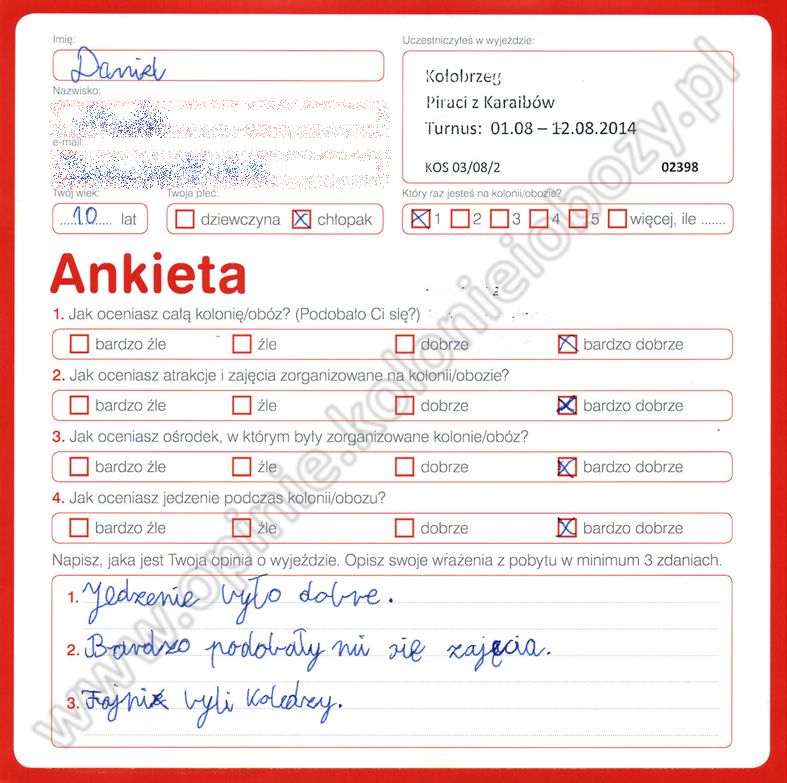 Imię:
Daniel
Uczestniczyłeś w wyjeździe:
Kołobrzeg
Piraci z Karaibów
Turnus: 01.08 – 12.08.2014
KOS 03/08/2 02398
Nazwisko:
e-mail:
Twój wiek:
10 lat
Twoja płeć:
dziewczyna chłopak
Który raz jesteś na kolonii/obozie?
1 2 3 4 5 więcej, ile .......
Ankieta
1. Jak oceniasz całą kolonię/obóz? (Podobało Ci się?)
bardzo źle źle dobrze bardzo dobrze
2. Jak oceniasz atrakcje i zajęcia zorganizowane na kolonii/obozie?
bardzo źle źle dobrze bardzo dobrze
3. Jak oceniasz ośrodek, w którym były zorganizowane kolonie/obóz?
bardzo źle źle dobrze bardzo dobrze
4. Jak oceniasz jedzenie podczas kolonii/obozu?
bardzo źle źle dobrze bardzo dobrze
Napisz, jaka jest Twoja opinia o wyjeździe. Opisz swoje wrażenia z pobytu w minimum 3 zdaniach.
1. Jedzenie było dobre.
2. Bardzo podobały mi się zajęcia.
3. Fajni byli koledzy.
www.opinie.kolonieiobozy.pl